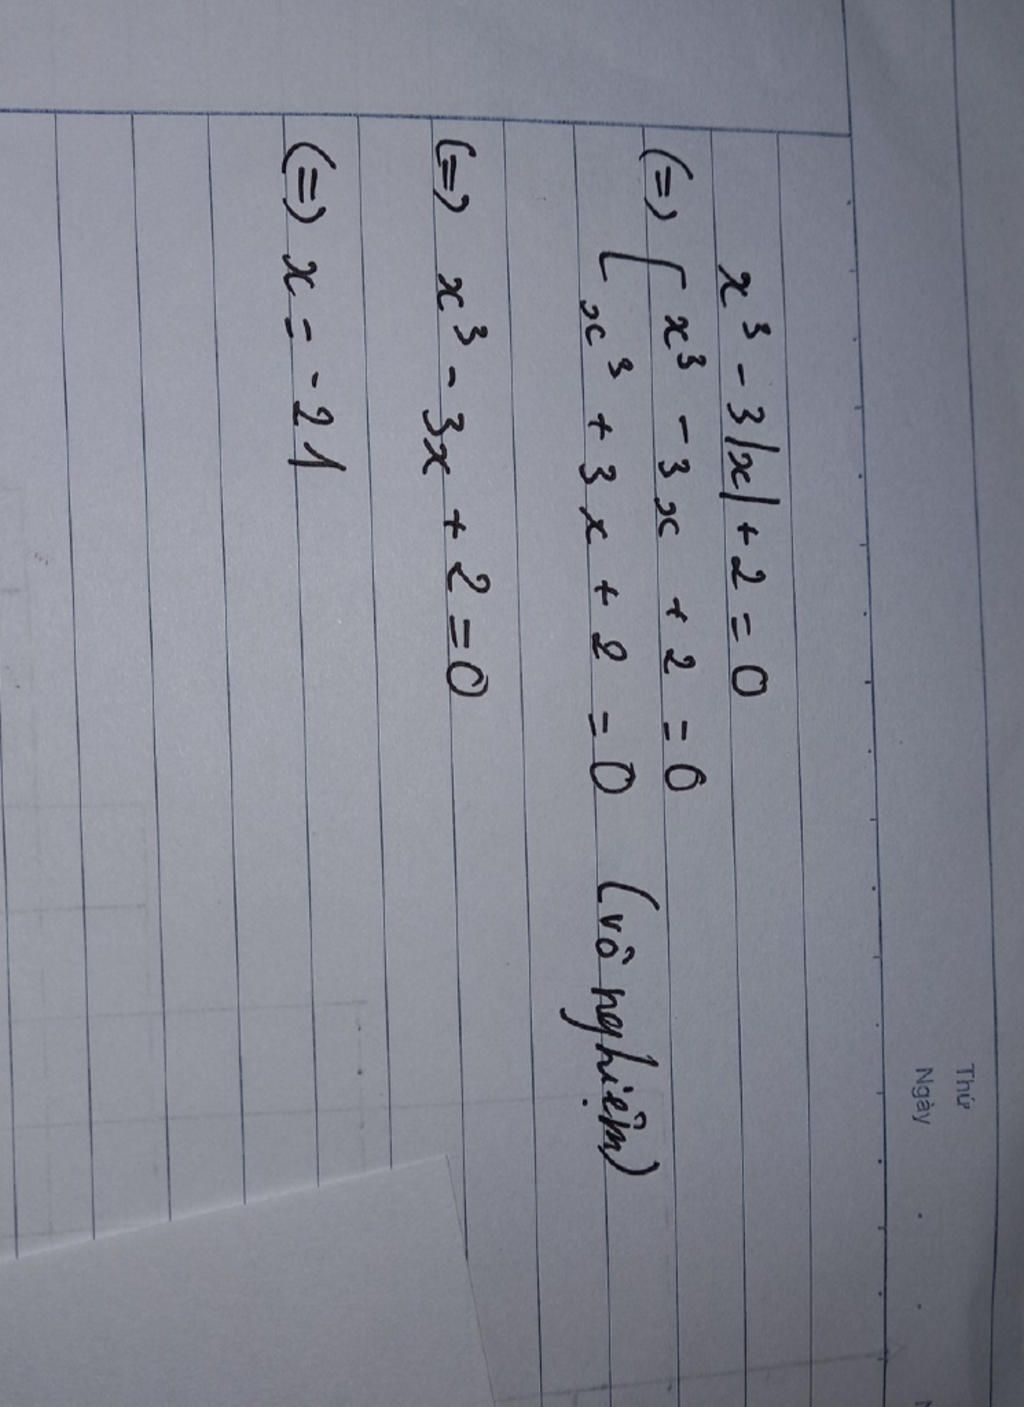 Thứ
Ngày
x³ - 3|x| + 2 = 0
(=) [ x³ - 3x + 2 = 0
x³ + 3x + 2 = 0 (vô nghiệm)
(=) x³ - 3x + 2 = 0
(=) x = -21